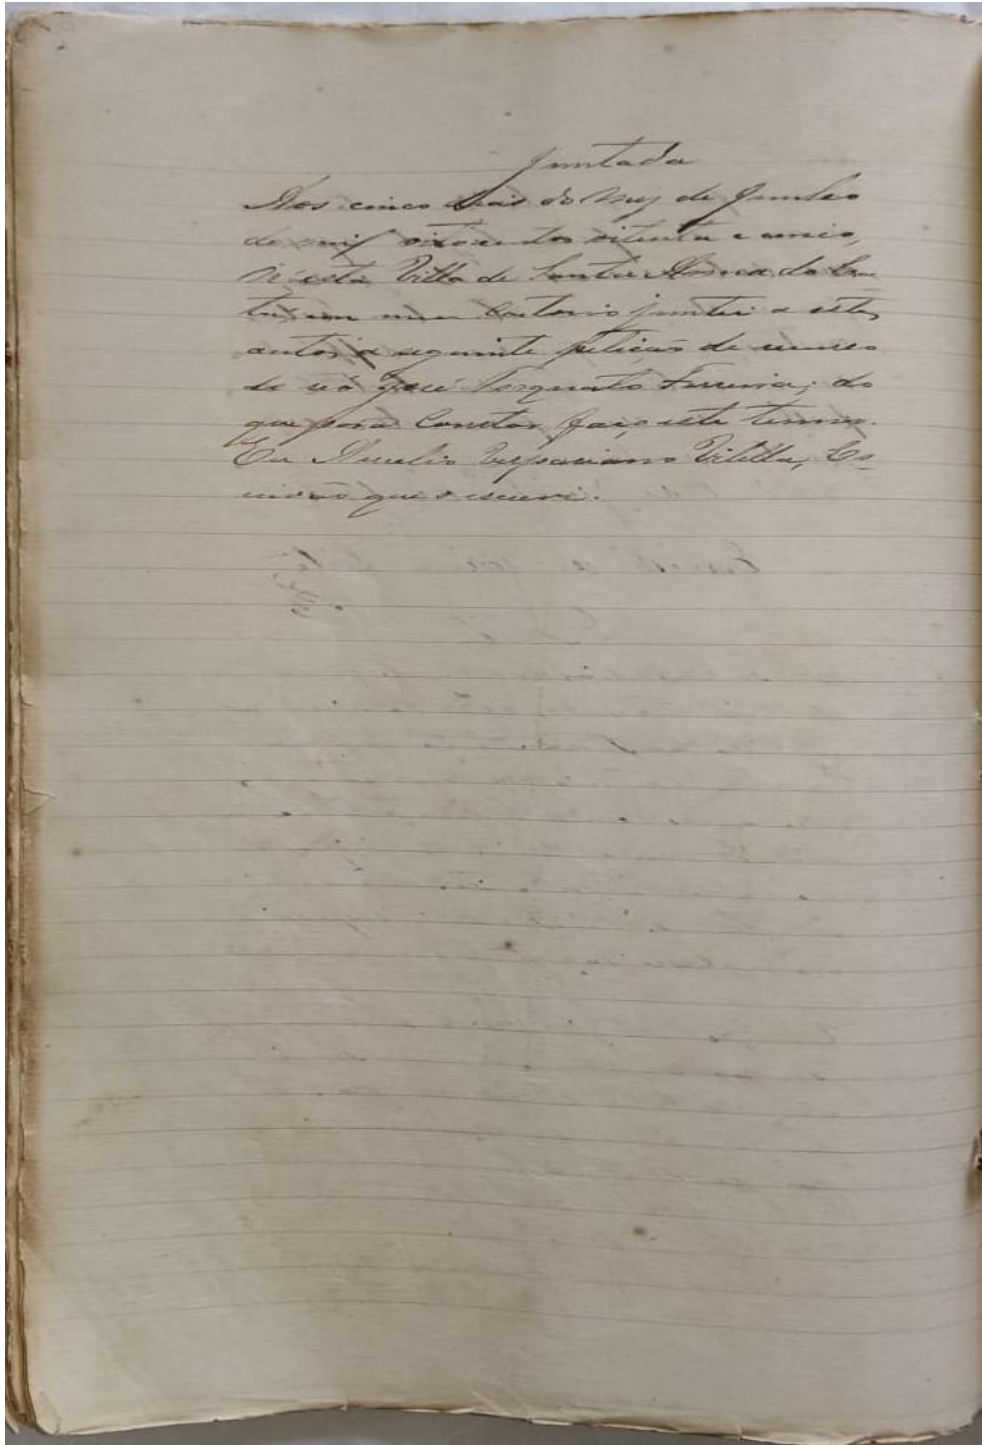 Juntada
Aos cinco dias do mez de Junho
de mil oitocentos oitenta e cinco,
N'esta Villa de Santa Anna do
em meu Cartorio juntei a estes
autos a seguinte petição
do réo José Torquato Ferreira; do
que para constar faço este termo.
Eu Aurelio Vespasiano Vilella, Es-
crivão que o escrevi.